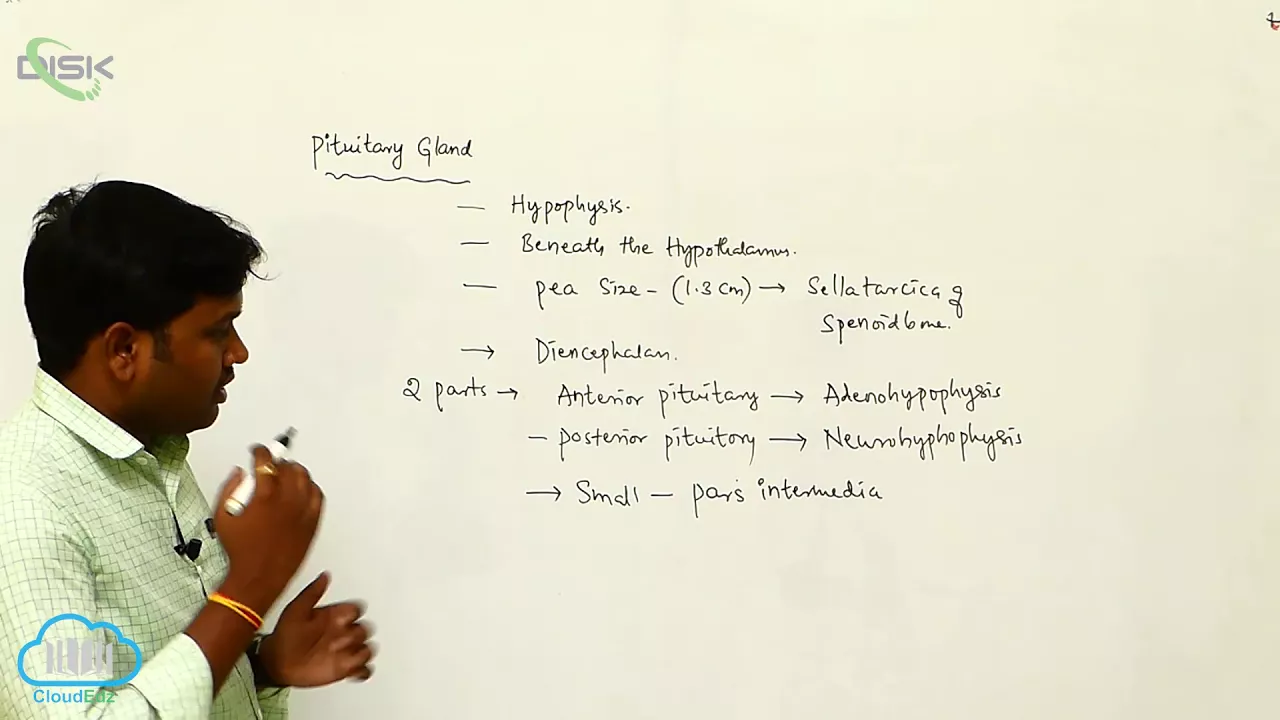 DISK
Pituitary Gland
— Hypophysis.
— Beneath the Hypothalamus.
— pea Size - (1.3 cm) → Sellatarcica of
Spenoidbone.
→ Diencephalan.
2 parts → Anterior pituitary → Adenohypophysis
- posterior pituitory → Neurohyphophysis
→ Small — pars intermedia
CloudEdz